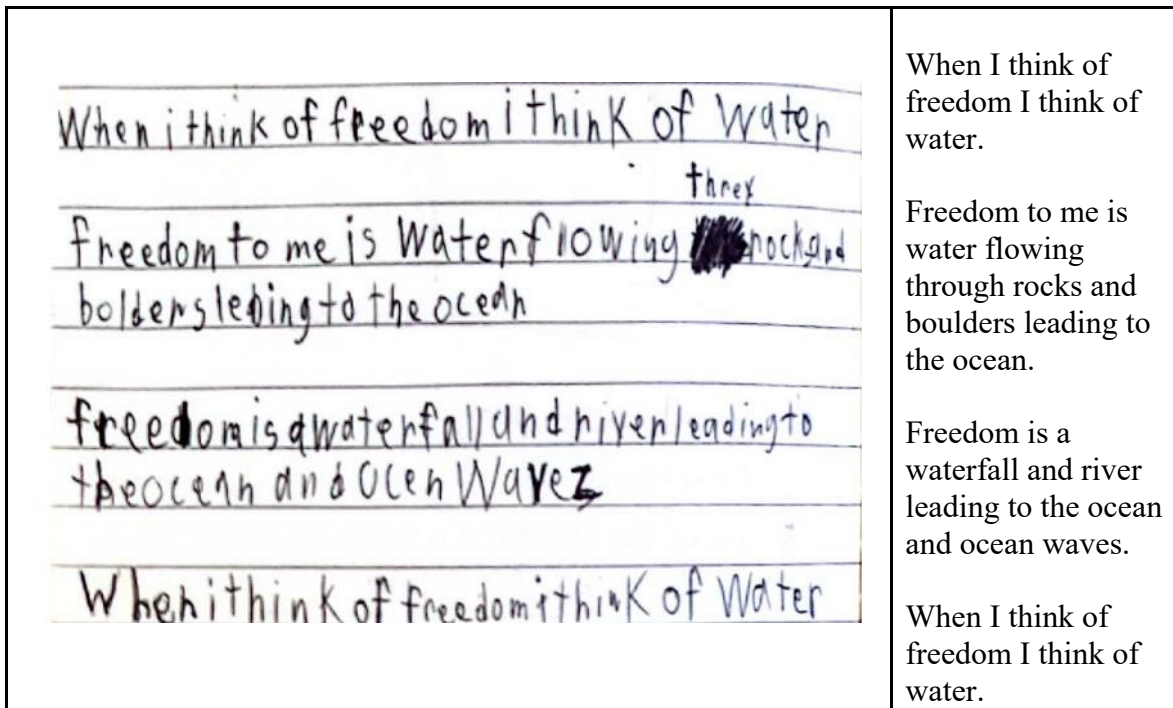 When i think of freedom i think of Water
threy
freedom to me is Water flowing rock and
bolders leding to the ocean
freedom is a waterfall and river leading to
the ocean and Ocen Wavez
When i think of freedom i think of Water
When I think of
freedom I think of
water.
Freedom to me is
water flowing
through rocks and
boulders leading to
the ocean.
Freedom is a
waterfall and river
leading to the ocean
and ocean waves.
When I think of
freedom I think of
water.